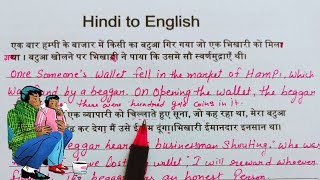 Hindi to English
एक बार हम्पी के बाजार में किसी का बटुआ गिर गया जो एक भिखारी को मिला
गया। बटुआ खोलने पर भिखारी ने पाया कि उसमें सौ स्वर्णमुद्राएँ थी।
Once Someone's wallet fell in the market of Hampi, which
was found by a beggar. On opening the wallet, the beggar
there were hundred gold coins in it.
एक व्यापारी को चिल्लाते हुए सुना, जो कह रहा था, मेरा बटुआ
कर देगा मैं उसे दूंगा। भिखारी ईमानदार इन्सान था।
beggar heard businessman Shouting: who was
Lost wallet; I will reward whoever
beggar an honest Person